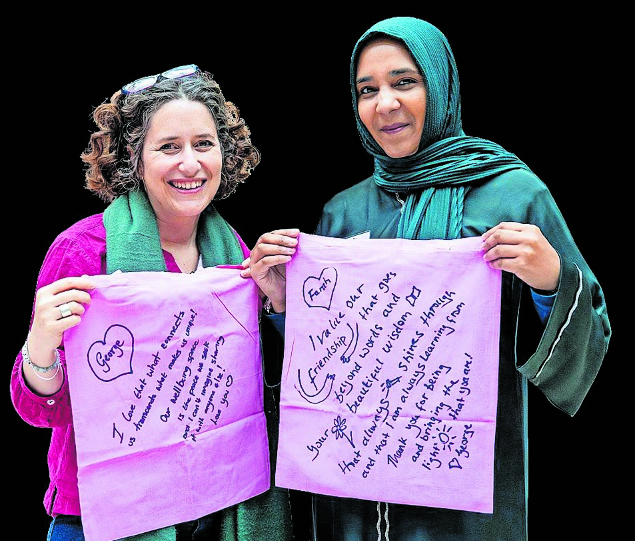 George
I love that what connects
us transcends what makes us unique!
Our Wellbeing space
is the peace we seek
and I can't imagine sharing
it with anyone else!
Love you
Farah
I love our
friendship that goes
beyond words and
Your beautiful wisdom
that always shines through
and that I am always learning from
Thank you for being
and bringing the
light that you are!
George